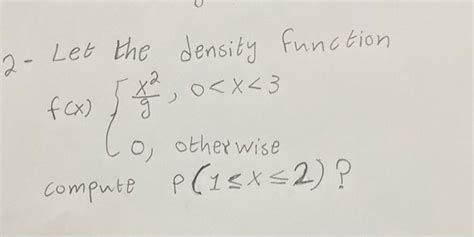 2- Let the density function
f(x) { x²/9, 0<x<3
0, otherwise
compute P(1≤x≤2)?